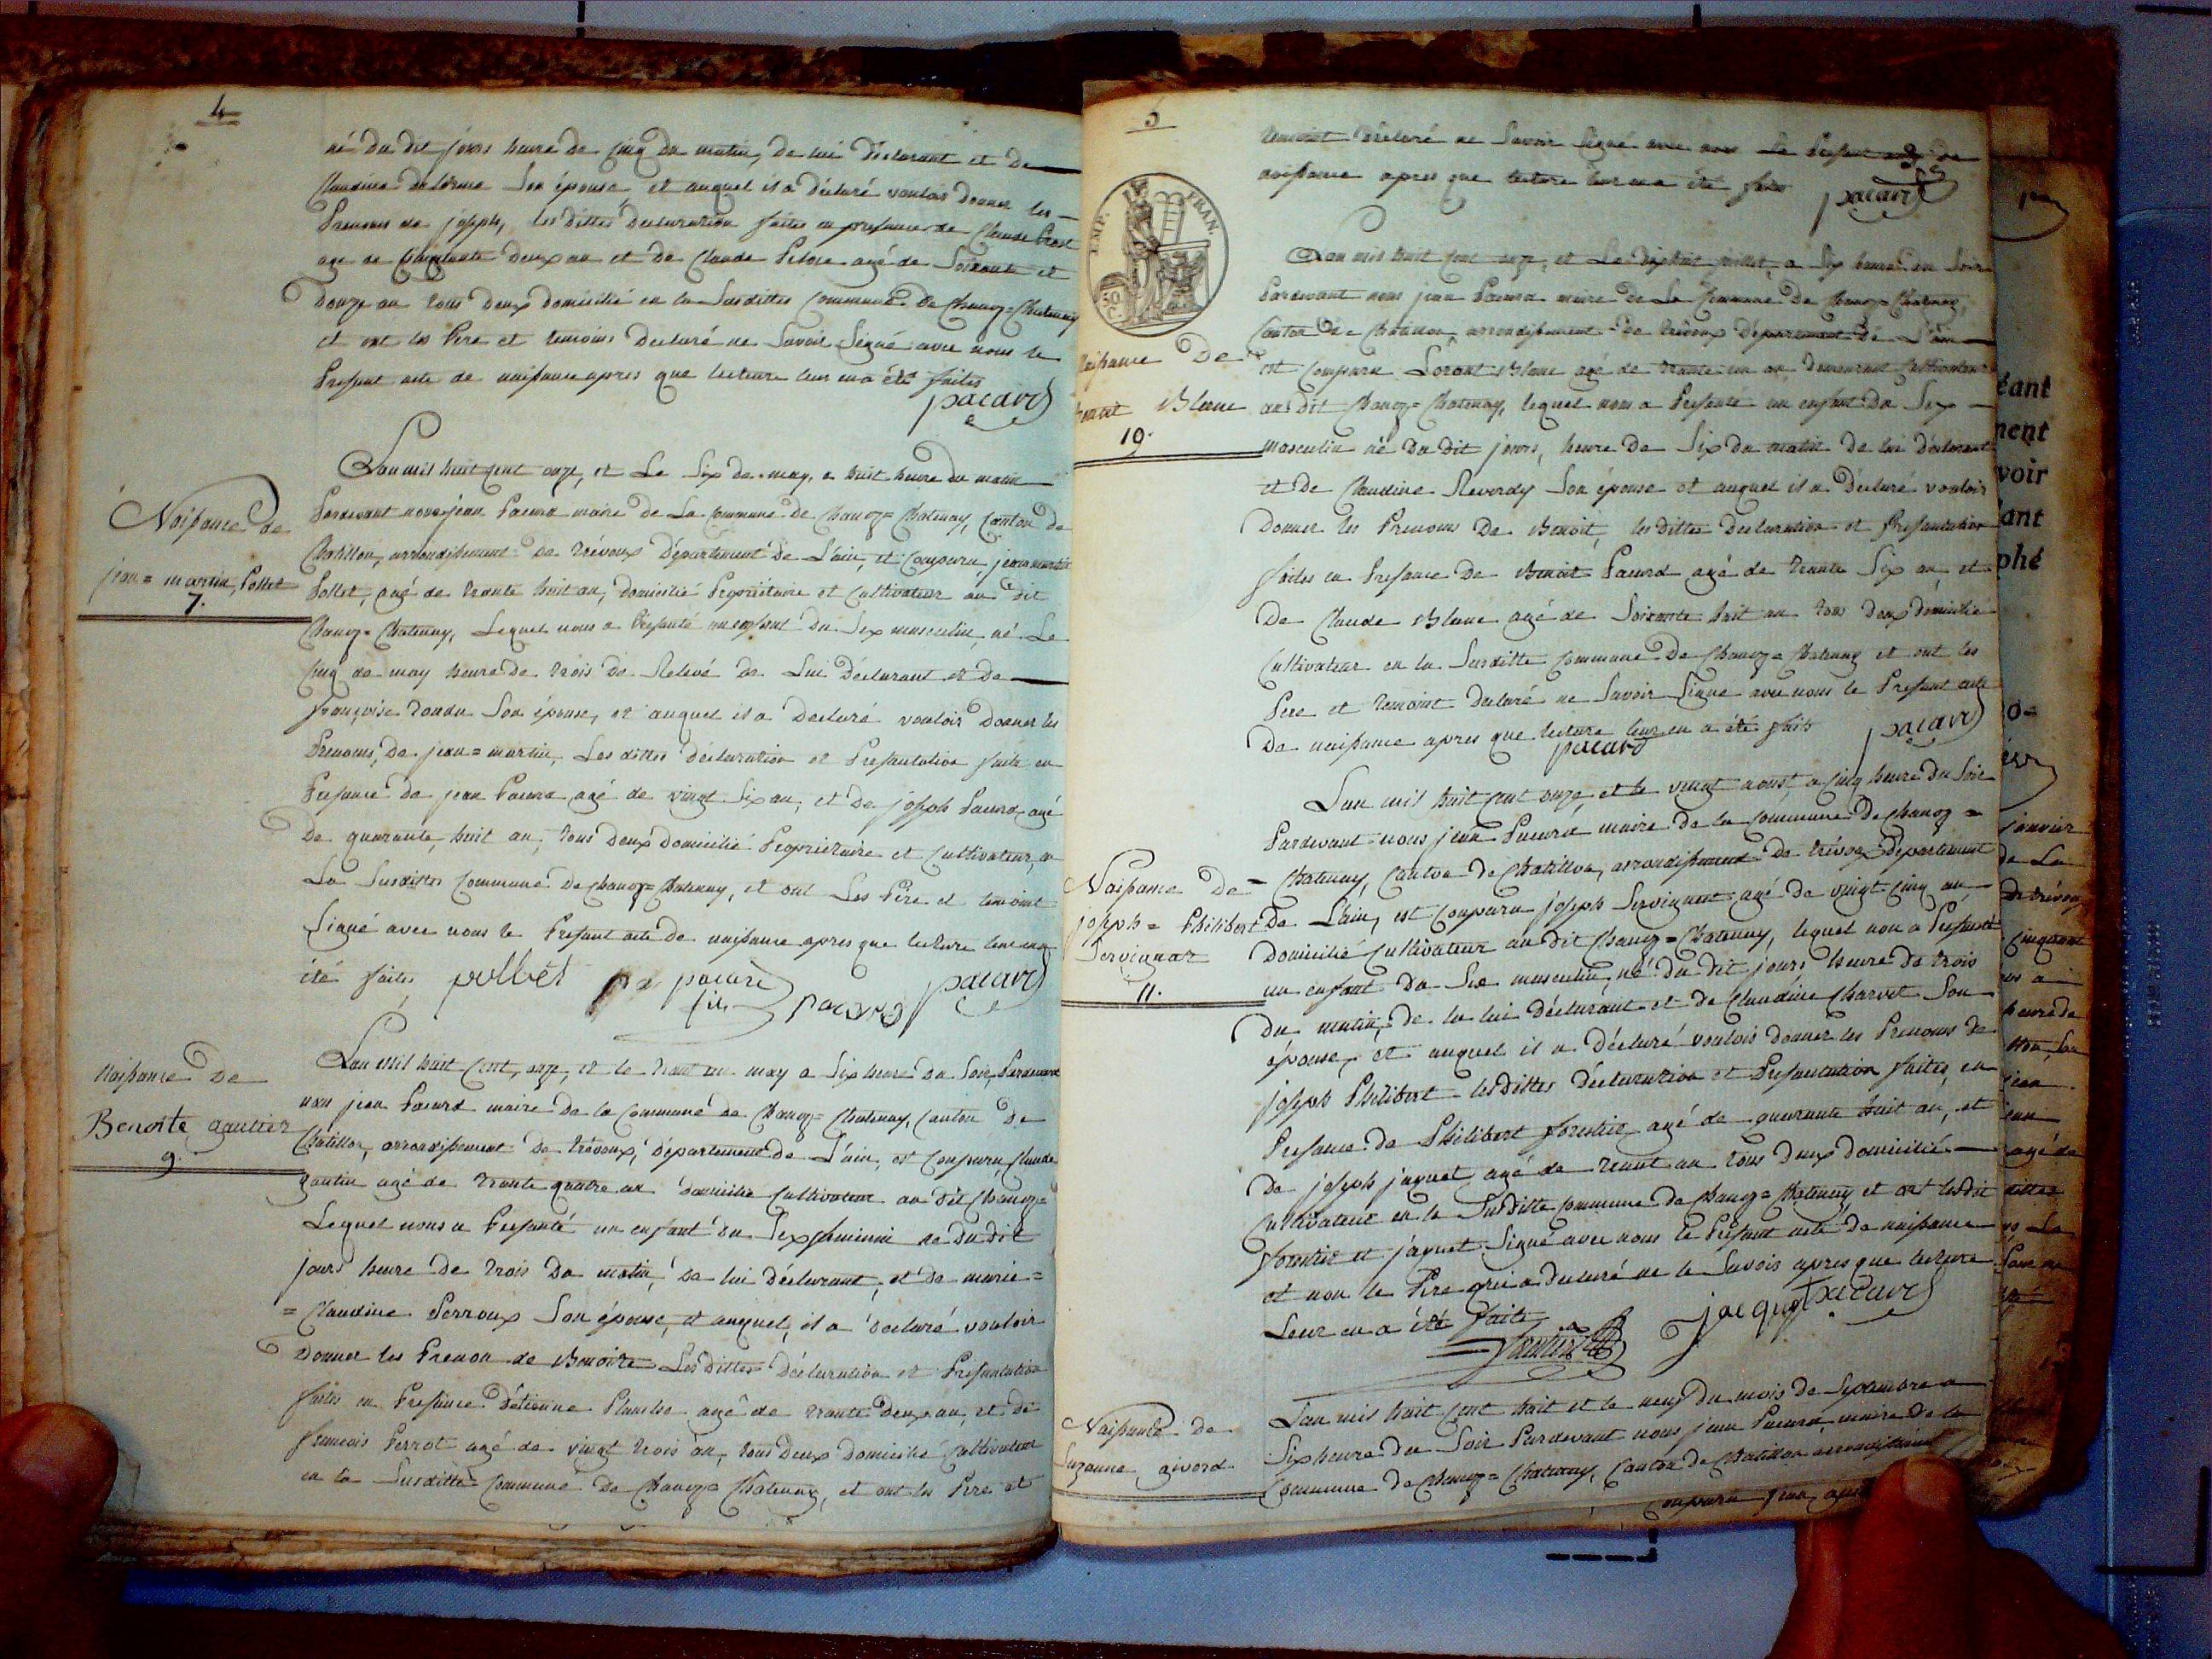 4
né du dit jours heure de cinq du matin, de lui déclarant et de
Claudine delorme Son épouse, et auquel il a déclaré vouloir donner les
Prenoms de joseph, les dittes declaration faites en presance de Claude
agé de Cinquante deux an et de Claude agé de Soixante et
douze an tous deux domicilié en la Susditte Commune de Chaneyz=Chatenay
et ont les Pere et temoins declaré ne Savoir Signé avec nous le
Present acte de naissance apres que lecture leur en a été faites
pacard
Naissance de
jean=martin Pollet
7.
L'an mil huit cent onze, et Le Six de may, a huit heure du matin
Pardevant nous jean Pacard maire de La Commune de Chaneyz=Chatenay, Canton de
Chatillon, arrondissement de trévoux département de L'ain, et Comparu, jean martin
Pollet, agé de trante huit an, domicilié Propriétaire et Cultivateur au dit
Chaneyz=Chatenay, Lequel nous a Présenté un enfant du Sex masculin, né Le
Cinq de may heure de trois de Relevé de Lui déclarant et de
françoise Son épouse, et auquel il a declaré vouloir donner les
Prenoms, de jean=martin, Les dittes déclaration et Presantation faite en
Presance de jean Pacard agé de vingt Six an, et de joseph Pacard, agé
de quarante, huit an, tous deux domicilié Propriétaire et Cultivateur, en
La Susdittes Commune de Chaneyz=Chatenay, et ont Les Père et temoint
Signé avec nous le Present acte de naissance apres que lecture leur en a
été faites pollet pacard fils pacard pacard
Naissance de
Benoite gautier
9.
L'an Mil huit Cent, onze, et le trant un may a Six heure du Soir, Pardevant
nous jean Pacard maire de la Commune de Chaneyz=Chatenay, Canton de
Chatillon, arrondissement de trévoux, département de L'ain, et Comparu Claude
gautier agé de trante quatre an domicilié Cultivateur au dit Chaneyz=
Lequel nous a Presanté un enfant du Sex féminin né du dit
jours heure de trois du matin, de lui déclarant, et de marie=
=Claudine Perroux Son épouse, et auquel, il a declaré vouloir
donner les Prenon de Benoite Les dittes déclaration et Presantation
faites en Presance d'étienne agé de trante deux an, et de
francois Perrot agé de vingt trois an, tous deux domicilié Cultivateur
en la Susditte Commune de Chaneyz=Chatenay, et ont les Pere et
5
temoint déclaré ne Savoir Signé avec nous le Presant acte de
naissance apres que lecture leur en a été faite
pacard
IMP. FRAN.
50 C.
Naissance de
Benoit Blanc
10.
L'an mil huit cent onze, et Le dix huit juillet, a Six heure du Soir
Pardevant nous jean Pacard maire de La Commune de Chaneyz=Chatenay,
Canton de Chatillon, arrondissement de trévoux département de L'ain
est Comparu Lorant Blanc agé de trante un an demeurant Cultivateur
au dit Chaneyz=Chatenay, lequel nous a Presanté un enfant du Sex
masculin né du dit jours, heure de Six du matin de lui déclarant
et de Claudine Reverdy Son épouse et auquel il a déclaré vouloir
donner les Prenoms de Benoit, les dittes declaration et Presantation
faites en Presance de Benoit Pacard agé de trante Six an et
De Claude Blanc agé de Soixante huit an tous deux domicilié
Cultivateur en la Susditte Commune de Chaneyz=Chatenay et ont les
Pere et temoint declaré ne Savoir Signé avec nous le Presant acte
de naissance apres que lecture leur en a été fait
pacard pacard
Naissance de
joseph=Philibert
Servignat
11.
L'an mil huit cent onze et le vingt aoust, a cinq heure du Soir
Pardevant nous jean Pacard maire de la Commune de Chaneyz=
=Chatenay, Canton de Chatillon, arrondissement de trévoux département
De L'ain, est Comparu joseph Servignat agé de vingt cinq an,
domicilié Cultivateur au dit Chaneyz=Chatenay, lequel nou a Presanté
un enfant du Sex masculin, né du dit jours heure de trois
du matin, de la lui déclarant et de Claudine Charvet Son
épouse, et auquel il a déclaré voulois donner les Prenoms de
joseph Philibert les dittes déclaration et Presantation faites, en
Presance de Philibert forestier agé de quarante huit an, et
de joseph jaquet, agé de trent an tous deux domicilié
Cultivateur en la Susditte Commune de Chaneyz=Chatenay et ont lesdit
forestier et jaquet Signé avec nous le Presant acte de naissance
et non le Pere qui a declaré ne le Savois apres que lecture
Leur en a été faite
jacquet pacard
Naissante de
Suzanne givord
L'an mil huit cent huit et le neuf du mois de Septembre a
Six heure du Soir Pardevant nous jean Pacard, maire de la
Commune de Chaneyz=Chatenay, Canton de Chatillon arrondissement
Comparu jean
éant
nent
voir
ant
phé
o=
janvier
de La
de trévoux
Cinquante
heure de
jean
agé de
dittes